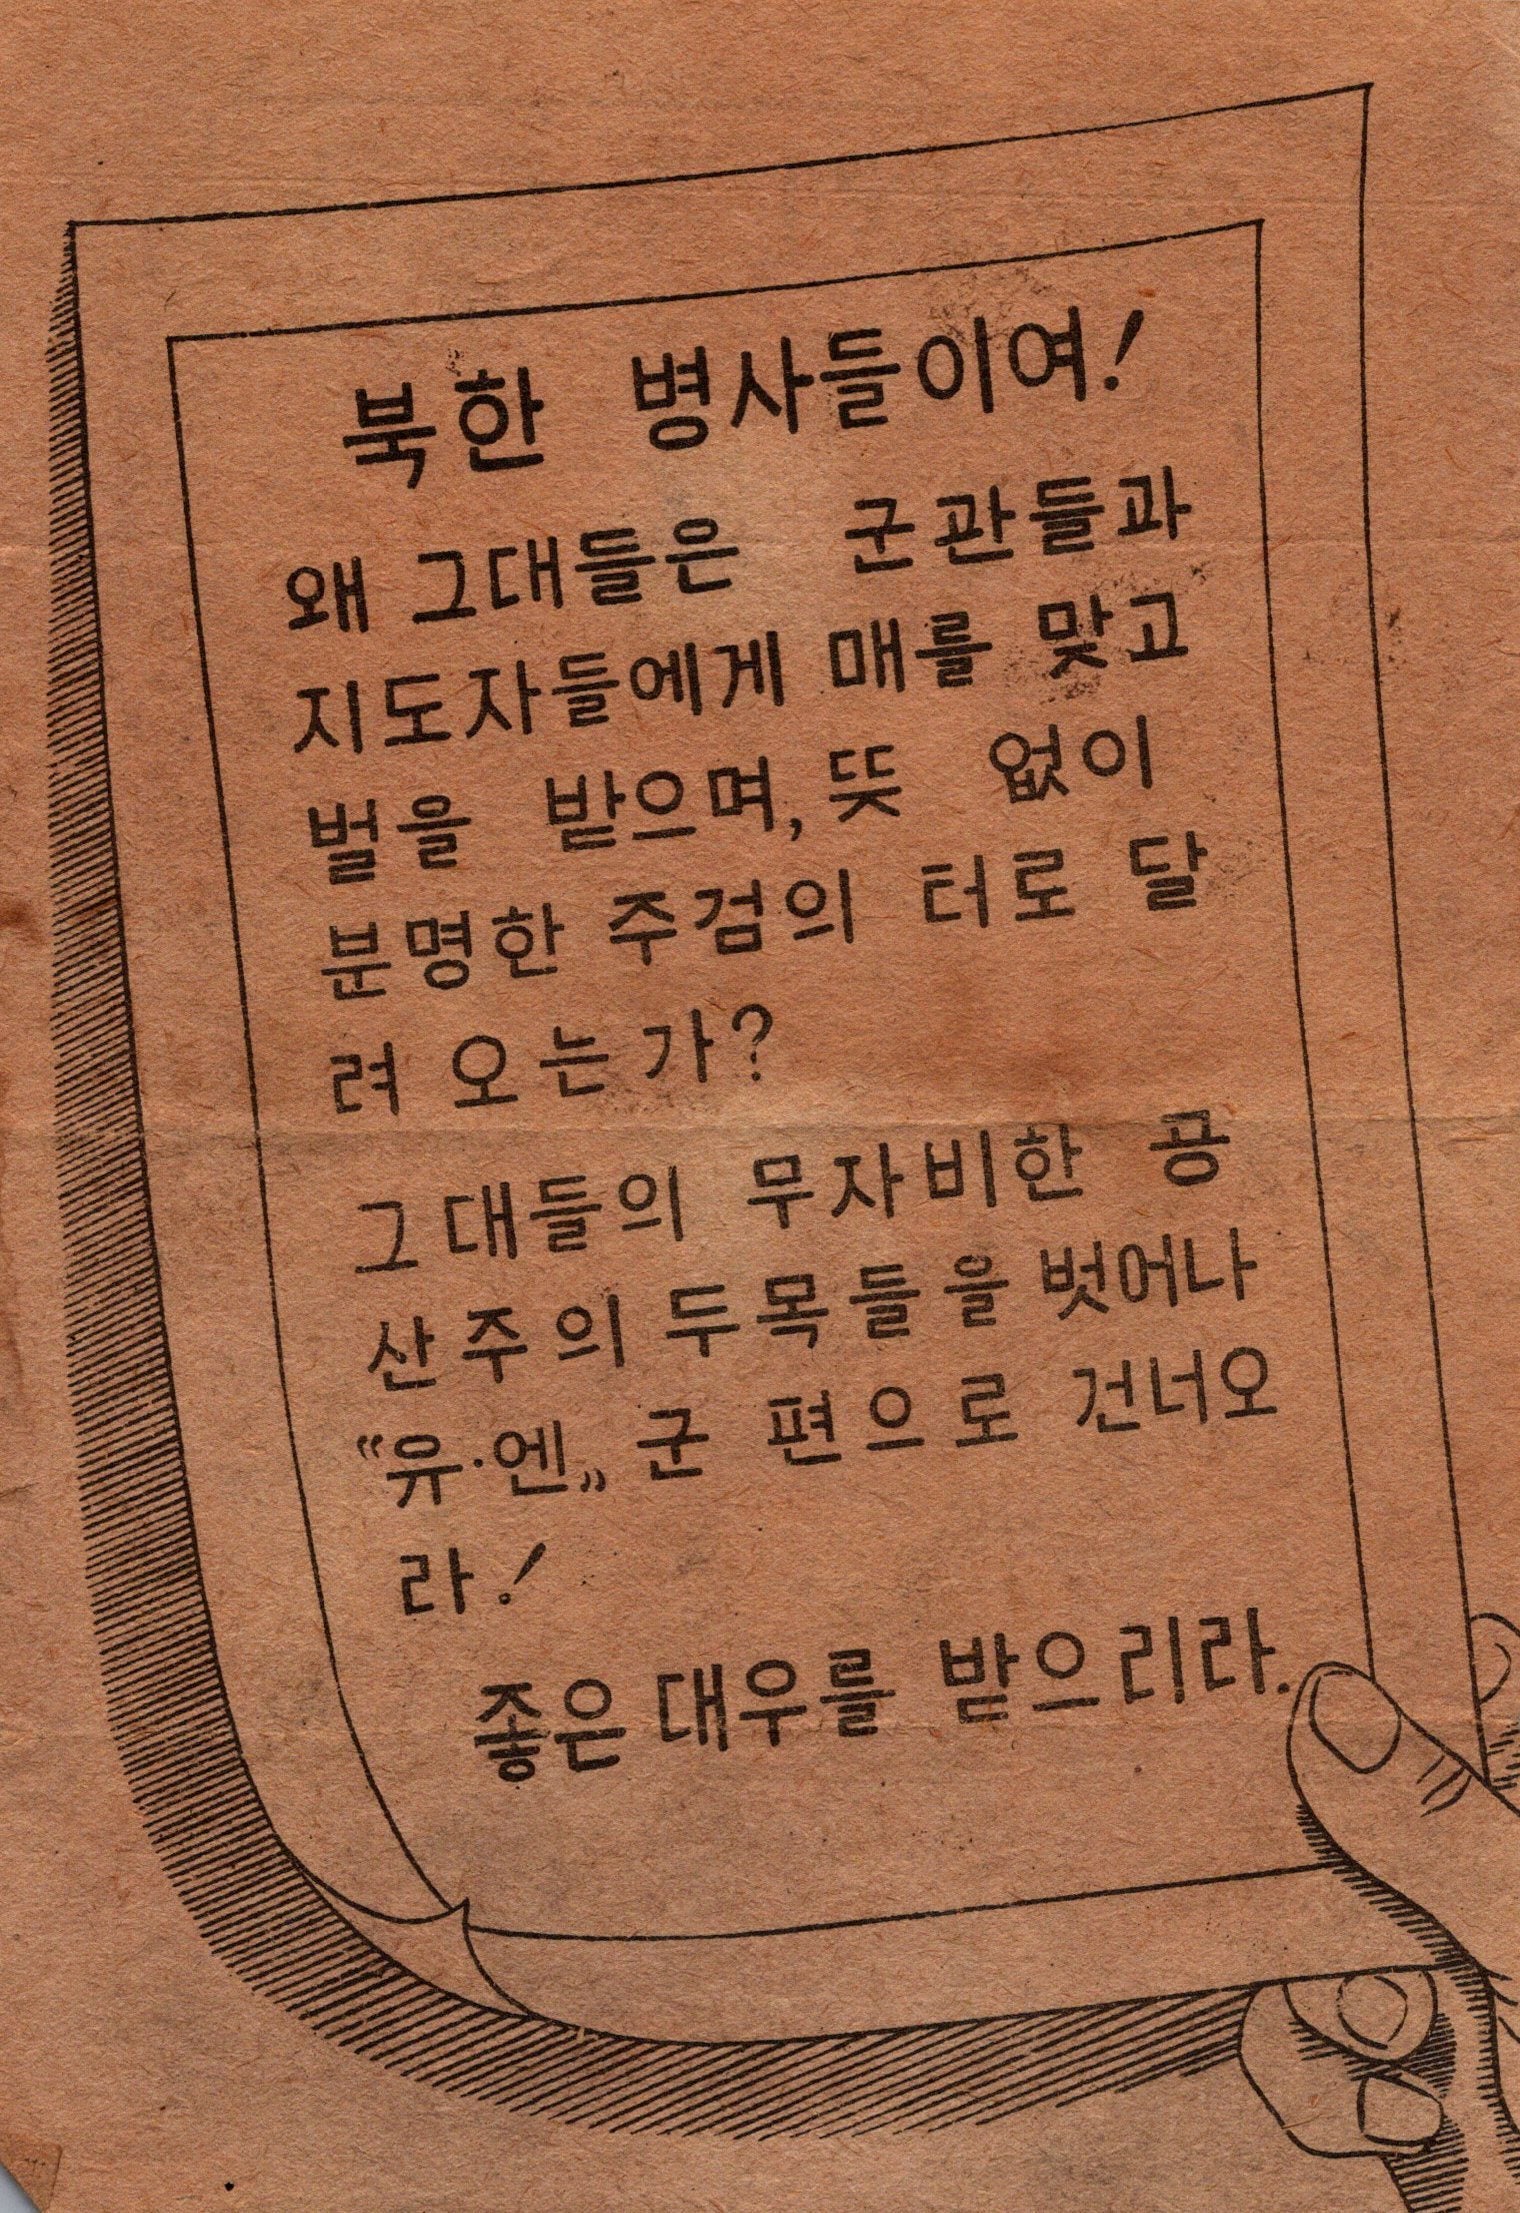 북한 병사들이여!
왜 그대들은 군관들과
지도자들에게 매를 맞고
벌을 받으며, 뜻 없이
분명한 주검의 터로 달
려 오는가?
그대들의 무자비한 공
산주의 두목들을 벗어나
“유·엔” 군 편으로 건너오
라!
좋은 대우를 받으리라.